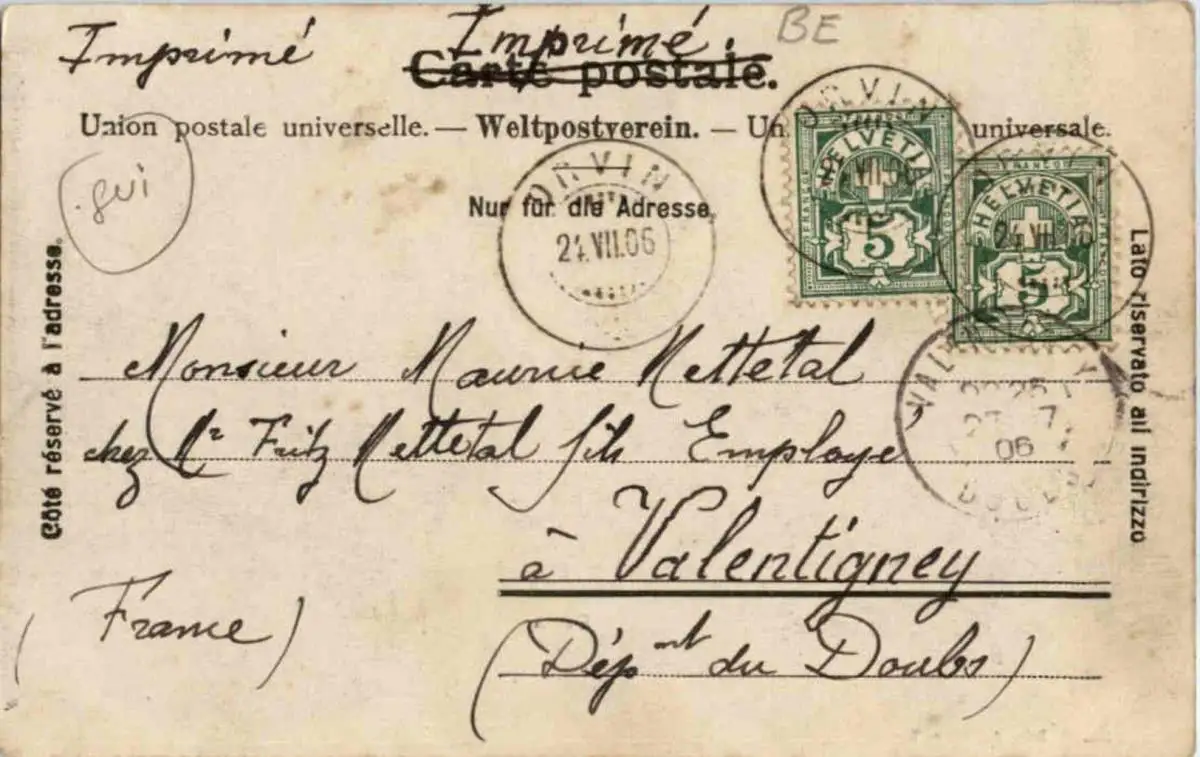 Imprimé Imprimé. BE
Carte postale.
Union postale universelle. — Weltpostverein. — Un universale.
Nur für die Adresse.
Côté réservé à l'adresse.
Lato riservato all indirizzo
ORVIN
24.VII.06
ORVIN
VII.06
HELVETIA
5
24.VII
FRANCO
HELVETIA
5
06
Monsieur Maurice Nettetal
chez Mr Fritz Nettetal fils Employé
à Valentigney
(France)
(Dépnt du Doubs)